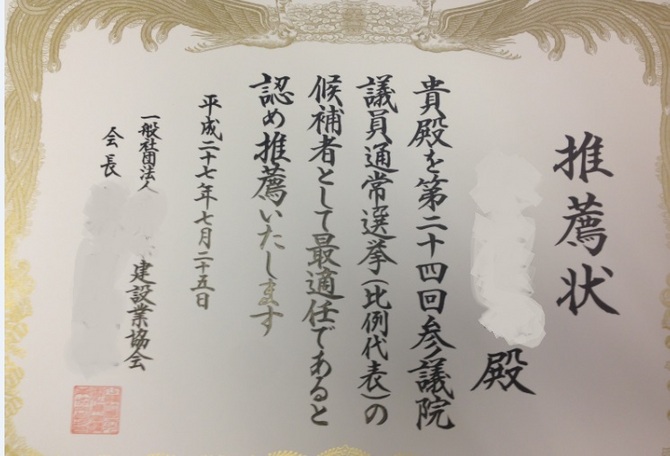 推薦状
殿
貴殿を第二十四回参議院
議員通常選挙(比例代表)の
候補者として最適任であると
認め推薦いたします
平成二十七年七月二十五日
一般社団法人 建設業協会
会長